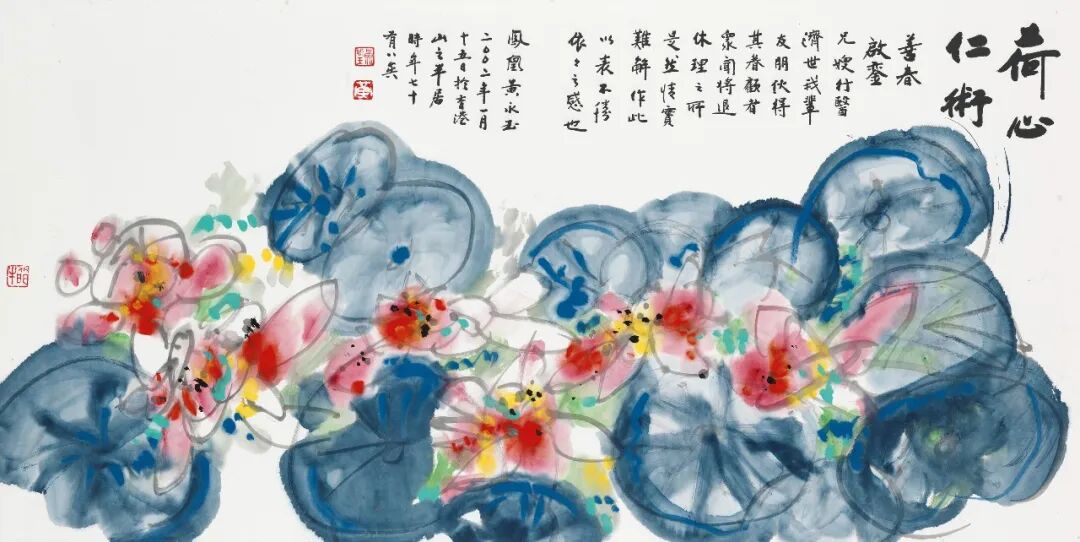 荷心
仁術
善春
啟鑾
兄嫂行醫
濟世我輩
友朋伙得
其眷顧者
眾聞將退
休理之所
是然情實
難解作此
以表不勝
依々之感也
鳳凰黃永玉
二〇〇二年一月
十五日於香港
山之半居
時年七十
有八矣
黃